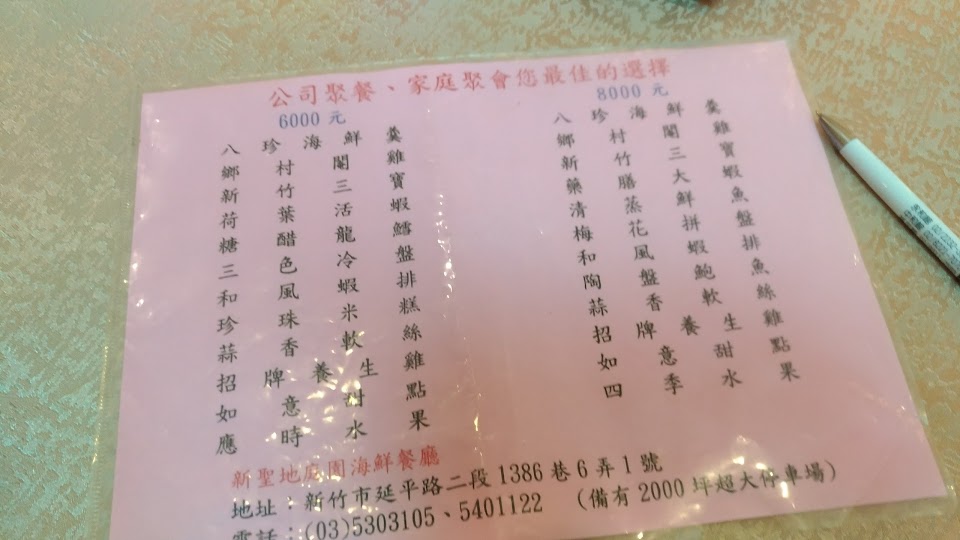 公司聚餐、家庭聚會您最佳的選擇
6000 元
八珍海鮮羹
鄉村閹雞
新竹三寶
荷葉活蝦
糖醋龍鱈
三色冷盤
和風蝦排
珍珠米糕
蒜香軟絲
招牌養生雞
如意甜點
應時水果
8000 元
八珍海鮮羹
鄉村閹雞
新竹三寶
藥膳大蝦
清蒸鮮魚
梅花拼盤
和風蝦排
陶盤鮑魚
蒜香軟絲
招牌養生雞
如意甜點
四季水果
新聖地庭園海鮮餐廳
地址：新竹市延平路二段1386巷6弄1號
電話：(03)5303105、5401122 (備有2000坪超大停車場)